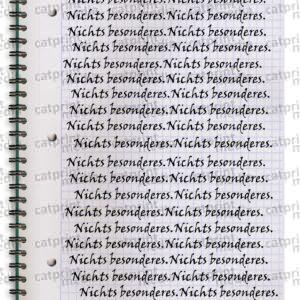 Nichts besonderes.Nichts besonderes.
Nichts besonderes.Nichts besonderes.
Nichts besonderes.Nichts besonderes.
Nichts besonderes.Nichts besonderes.
Nichts besonderes.Nichts besonderes.
Nichts besonderes.Nichts besonderes.
Nichts besonderes.Nichts besonderes.
Nichts besonderes.Nichts besonderes.
Nichts besonderes.Nichts besonderes.
Nichts besonderes.Nichts besonderes.
Nichts besonderes.Nichts besonderes.
Nichts besonderes.Nichts besonderes.
Nichts besonderes.Nichts besonderes.
Nichts besonderes.Nichts besonderes.
Nichts besonderes.Nichts besonderes.
Nichts besonderes.Nichts besonderes.
Nichts besonderes.Nichts besonderes.
Nichts besonderes.Nichts besonderes.
Nichts besonderes.Nichts besonderes.